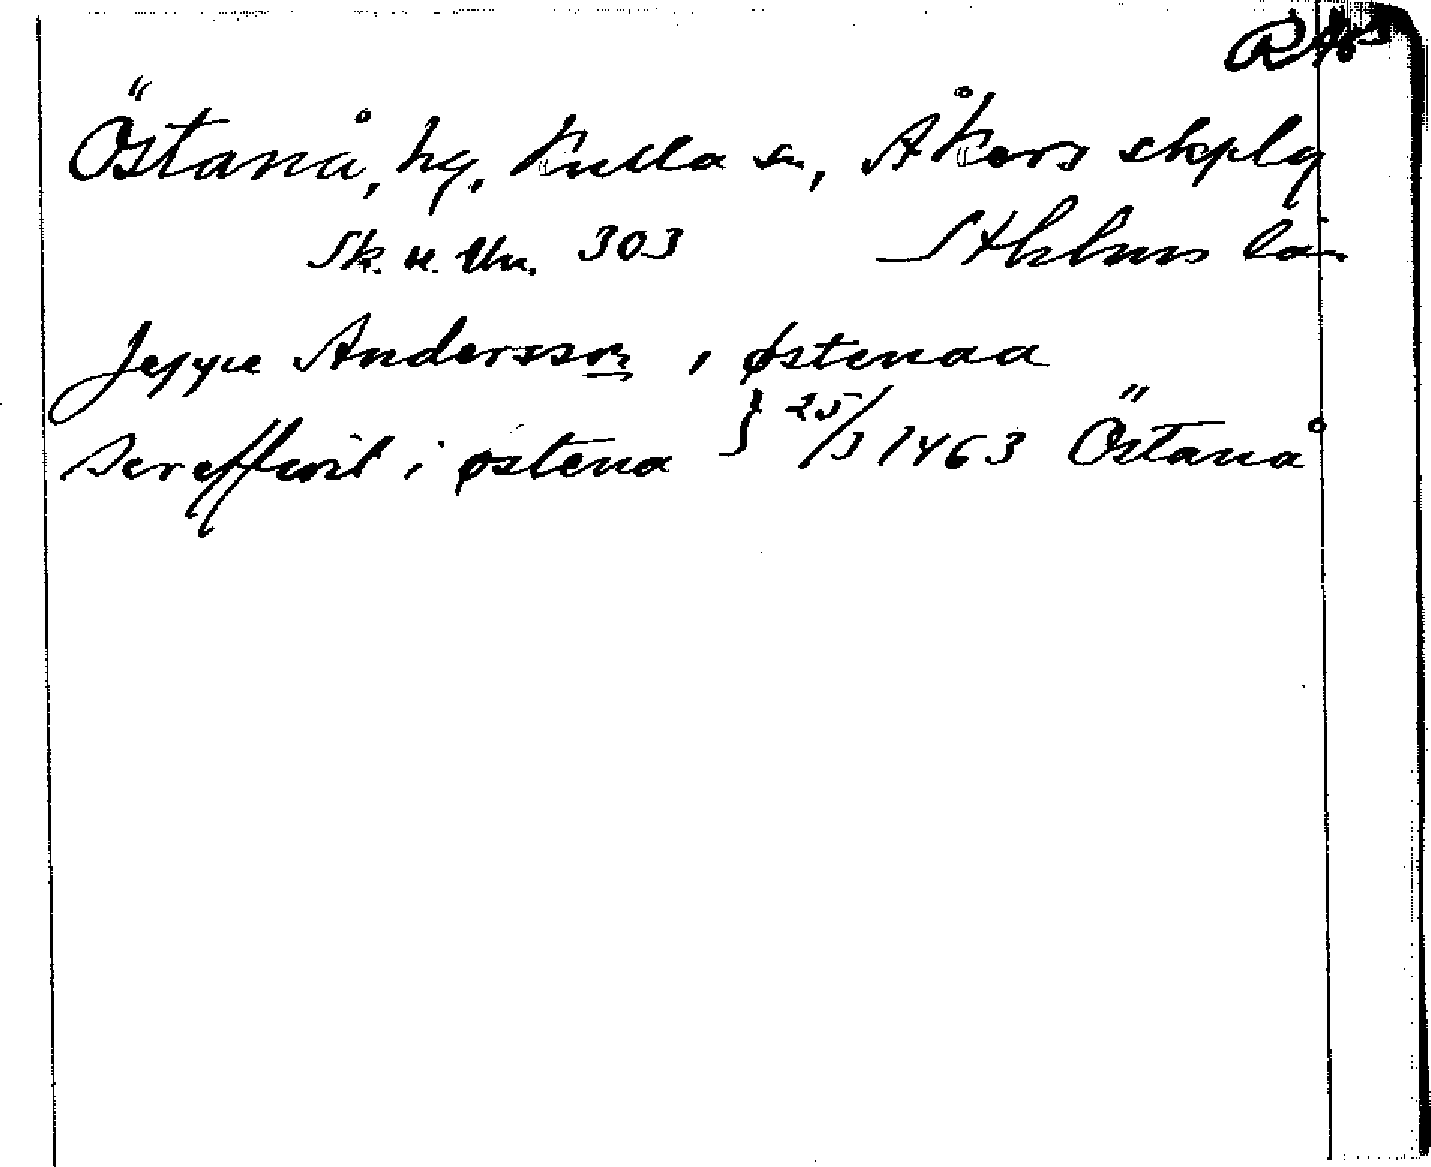 Östanå, hg. Kulla sn, Åkers skplg
Sk. u. Un. 303 Sthlms län
Jeppe Andersson, østenaa
i østena } 25/3 1463 Östanå